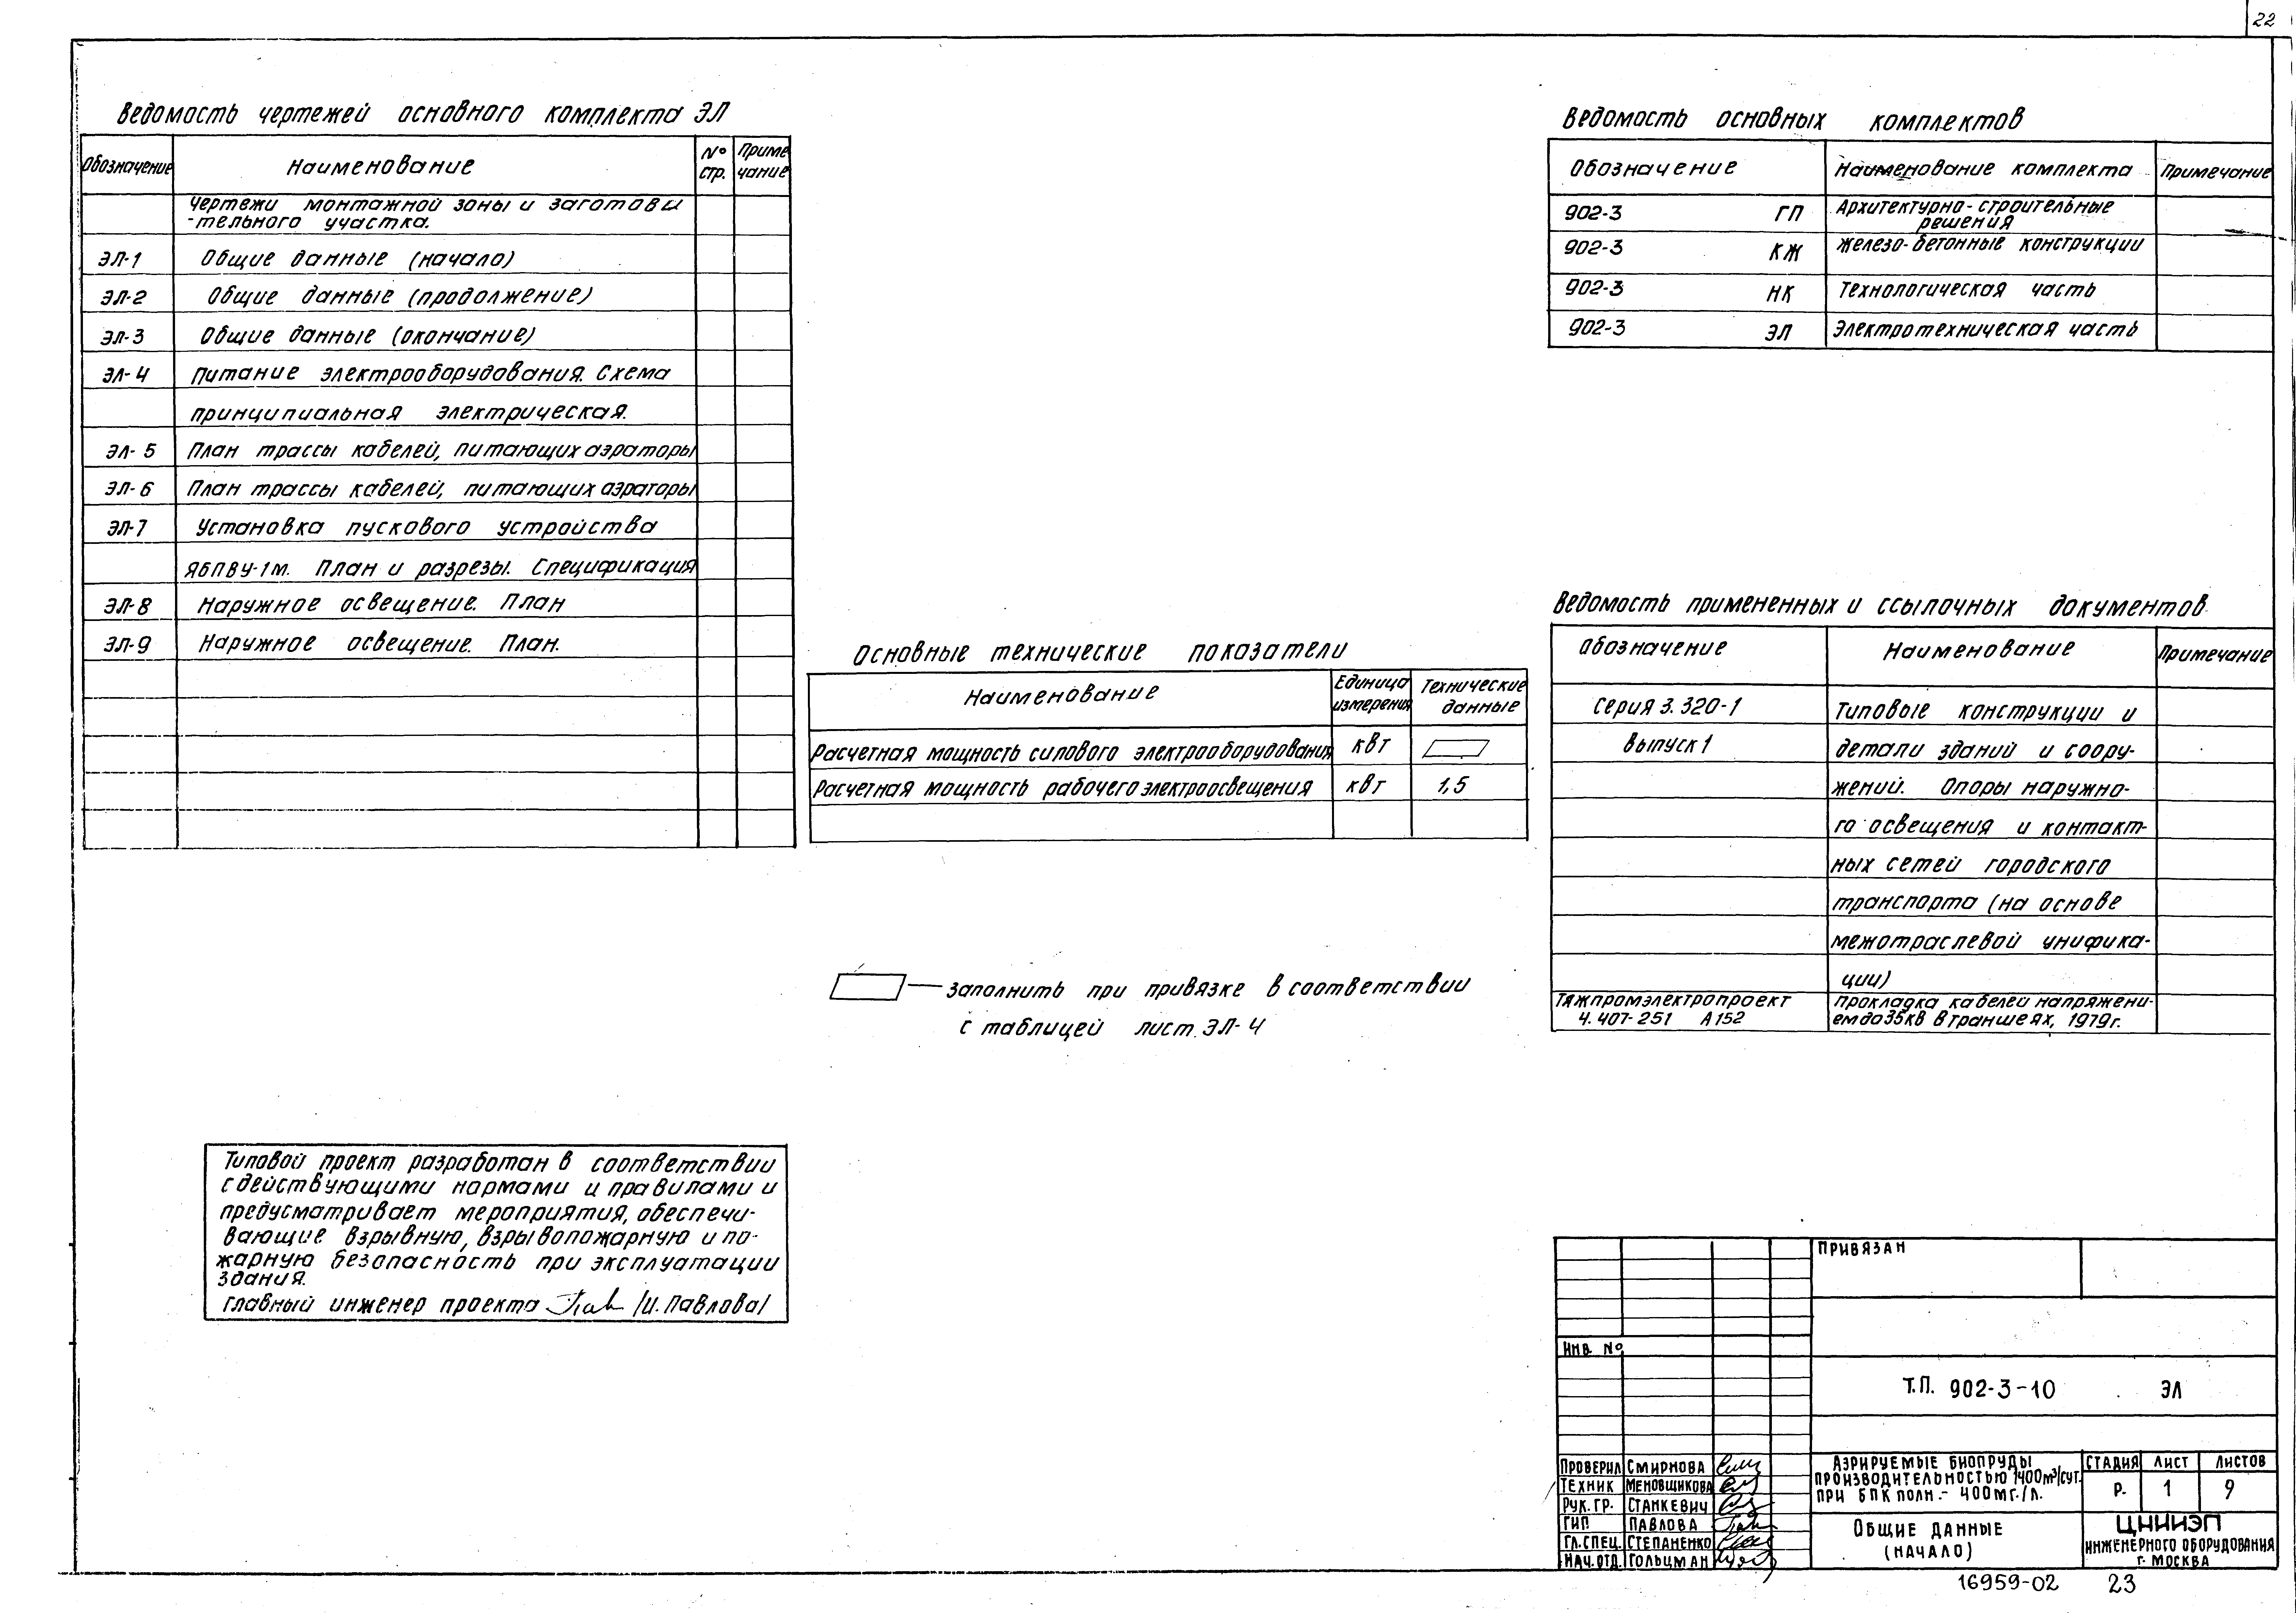 22
Ведомость чертежей основного комплекта ЭЛ
Обозначение Наименование № стр. Приме чание
Чертежи монтажной зоны и заготови
-тельного участка.
ЭЛ-1 Общие данные (начало)
ЭЛ-2 Общие данные (продолжение)
ЭЛ-3 Общие данные (окончание)
ЭЛ-4 Питание электрооборудования. Схема
принципиальная электрическая.
ЭЛ-5 План трассы кабелей, питающих аэраторы
ЭЛ-6 План трассы кабелей, питающих аэраторы
ЭЛ-7 Установка пускового устройства
ЯБПВУ-1м. План и разрезы. Спецификация
ЭЛ-8 Наружное освещение. План
ЭЛ-9 Наружное освещение. План.
Основные технические показатели
Наименование Единица измерения Технические данные
Расчетная мощность силового электрооборудования квт
Расчетная мощность рабочего электроосвещения квт 1,5
— заполнить при привязке в соответствии
с таблицей лист ЭЛ-4
Ведомость основных комплектов
Обозначение Наименование комплекта Примечание
902-3 ГП Архитектурно-строительные
решения
902-3 КЖ Железо-бетонные конструкции
902-3 НК Технологическая часть
902-3 ЭЛ Электротехническая часть
Ведомость примененных и ссылочных документов
Обозначение Наименование Примечание
Серия 3.320-1 Типовые конструкции и
Выпуск 1 детали зданий и соору-
жений. Опоры наружно-
го освещения и контакт-
ных сетей городского
транспорта (на основе
межотраслевой унифика-
ции)
Тяжпромэлектропроект Прокладка кабелей напряжени-
4.407-251 А152 ем до 35кв в траншеях, 1979г.
Типовой проект разработан в соответствии
с действующими нормами и правилами и
предусматривает мероприятия, обеспечи-
вающие взрывную, взрывопожарную и по-
жарную безопасность при эксплуатации
здания.
Главный инженер проекта /И. Павлова/
Привязан
Инв. №
Т.П. 902-3-10 ЭЛ
Проверил Смирнова
Техник Меновщикова
Рук. гр. Станкевич
ГИП Павлова
Гл. спец. Степаненко
Нач. отд. Гольцман
Аэрируемые биопруды
производительностью 1400м³/сут.
при БПК полн.- 400мг./л.
Стадия Лист Листов
Р. 1 9
Общие данные
(начало)
ЦНИИЭП
инженерного оборудования
г. Москва
16959-02 23